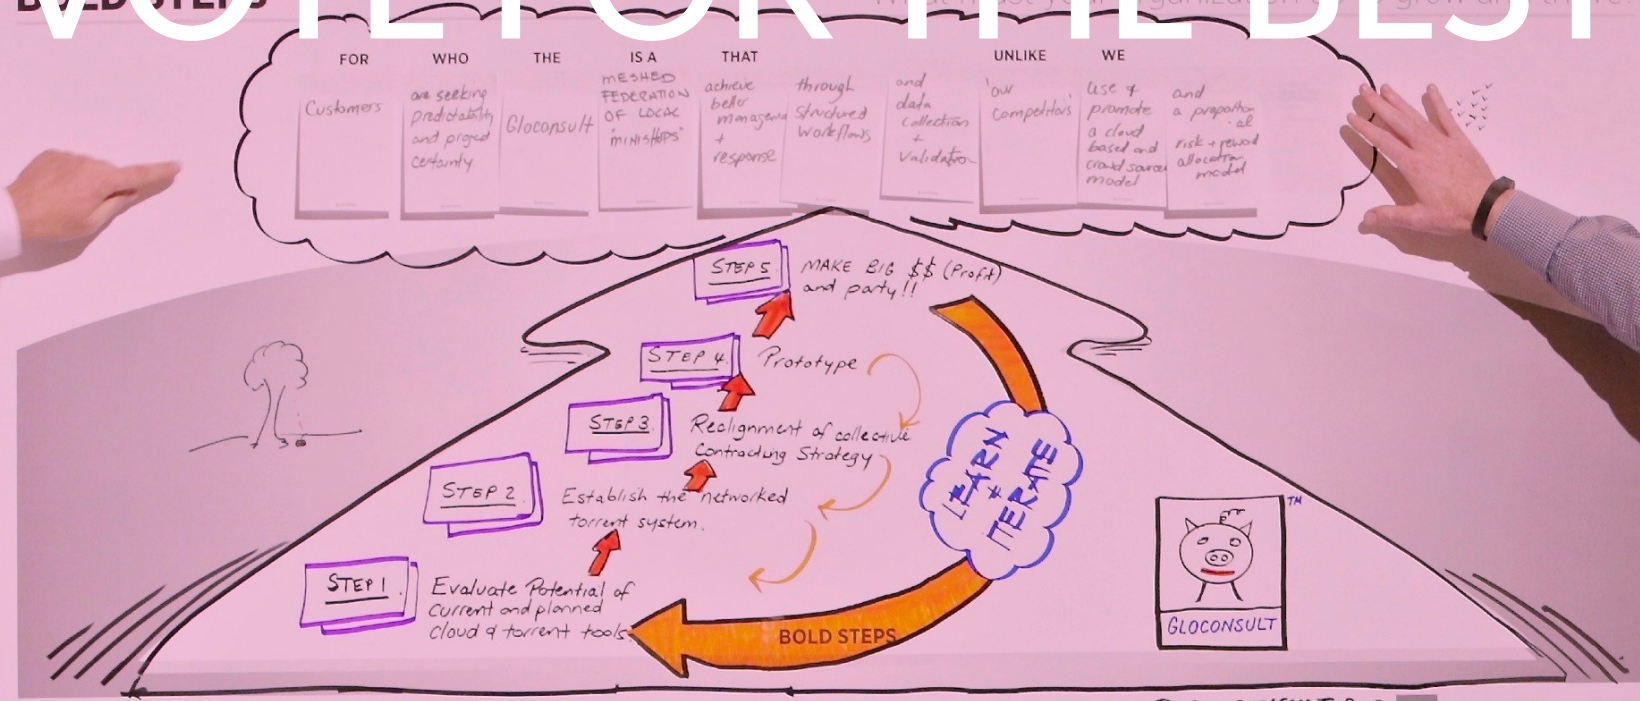 BOLD STEPS
VOTE FOR THE BEST
FOR
WHO
THE
IS A
THAT
UNLIKE
WE
Customers
are seeking
predictability
and project
certainty
Gloconsult
MESHED
FEDERATION
OF LOCAL
"MINISHOPS"
achieve
better
management
+
response
through
structured
workflows
and
data
collection
+
validation
our
competitors
use &
promote
a cloud
based and
crowd source
model
and
a proportion
al
risk + reward
allocation
model
STEP 5
MAKE BIG $$ (Profit)
and party!!
STEP 4
Prototype
STEP 3
Realignment of collective
Contracting Strategy
STEP 2
Establish the networked
torrent system.
STEP 1
Evaluate Potential of
current and planned
cloud & torrent tools
LEARN
+
ITERATE
BOLD STEPS
TM
GLOCONSULT